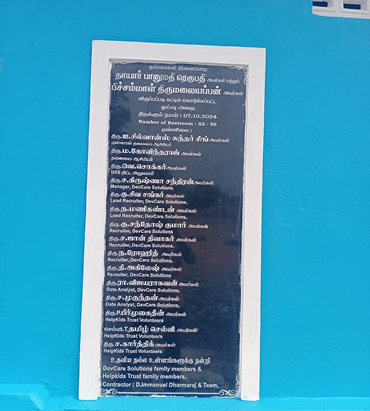 தாயார் பானுமதி ரெகுபதி அவர்கள் மற்றும்
பிச்சம்மாள் திருமலையப்பன் அவர்கள்
விருப்பப்படி கட்டிக் கொடுக்கப்பட்ட
ஓய்வு அறை
திறக்கும் நாள் : 07.10.2024
Number of Restroom : 52 - 56
முன்னிலை :
திரு.ஐ.சில்வான்ஸ் சுந்தர் சிங் அவர்கள்
திரு.ம.கோவிந்தராஜ் அவர்கள்
தலைமை ஆசிரியர்
திரு.வெ.சொக்கர் அவர்கள்
NSS திட்ட அலுவலர்
திரு.ச.கிருஷ்ணா சந்திரன் அவர்கள்
Manager, DevCare Solutions.
திரு.கு.சிவ சங்கர் அவர்கள்
Lead Recruiter, DevCare Solutions.
திரு.ந.மணிகண்டன் அவர்கள்
Lead Recruiter, DevCare Solutions.
திரு.கு.சந்தோஷ் குமார் அவர்கள்
Recruiter, DevCare Solutions
திரு.ச.ஜான் திவாகர் அவர்கள்
Recruiter, DevCare Solutions.
திரு.ந.ரோஹித் அவர்கள்
Recruiter, DevCare Solutions.
திரு.தி.அகிலேஷ் அவர்கள்
Recruiter, DevCare Solutions.
திரு.ரா.விஜயராகவன் அவர்கள்
Data Analyst, DevCare Solutions.
திரு.ச.முகுந்தன் அவர்கள்
Data Analyst, DevCare Solutions.
திரு.பிரிமுகைதீன் அவர்கள்
HelpKids Trust Volunteers
தமிழ் செல்வி அவர்கள்
HelpKids Trust Volunteers
திரு.ச.கார்த்திக் அவர்கள்
HelpKids Trust Volunteers
உதவிய நல்ல உள்ளங்களுக்கு நன்றி
DevCare Solutions family members &
Helpkids Trust family members.
Contractor : D.Immanuel Dharmaraj & Team,